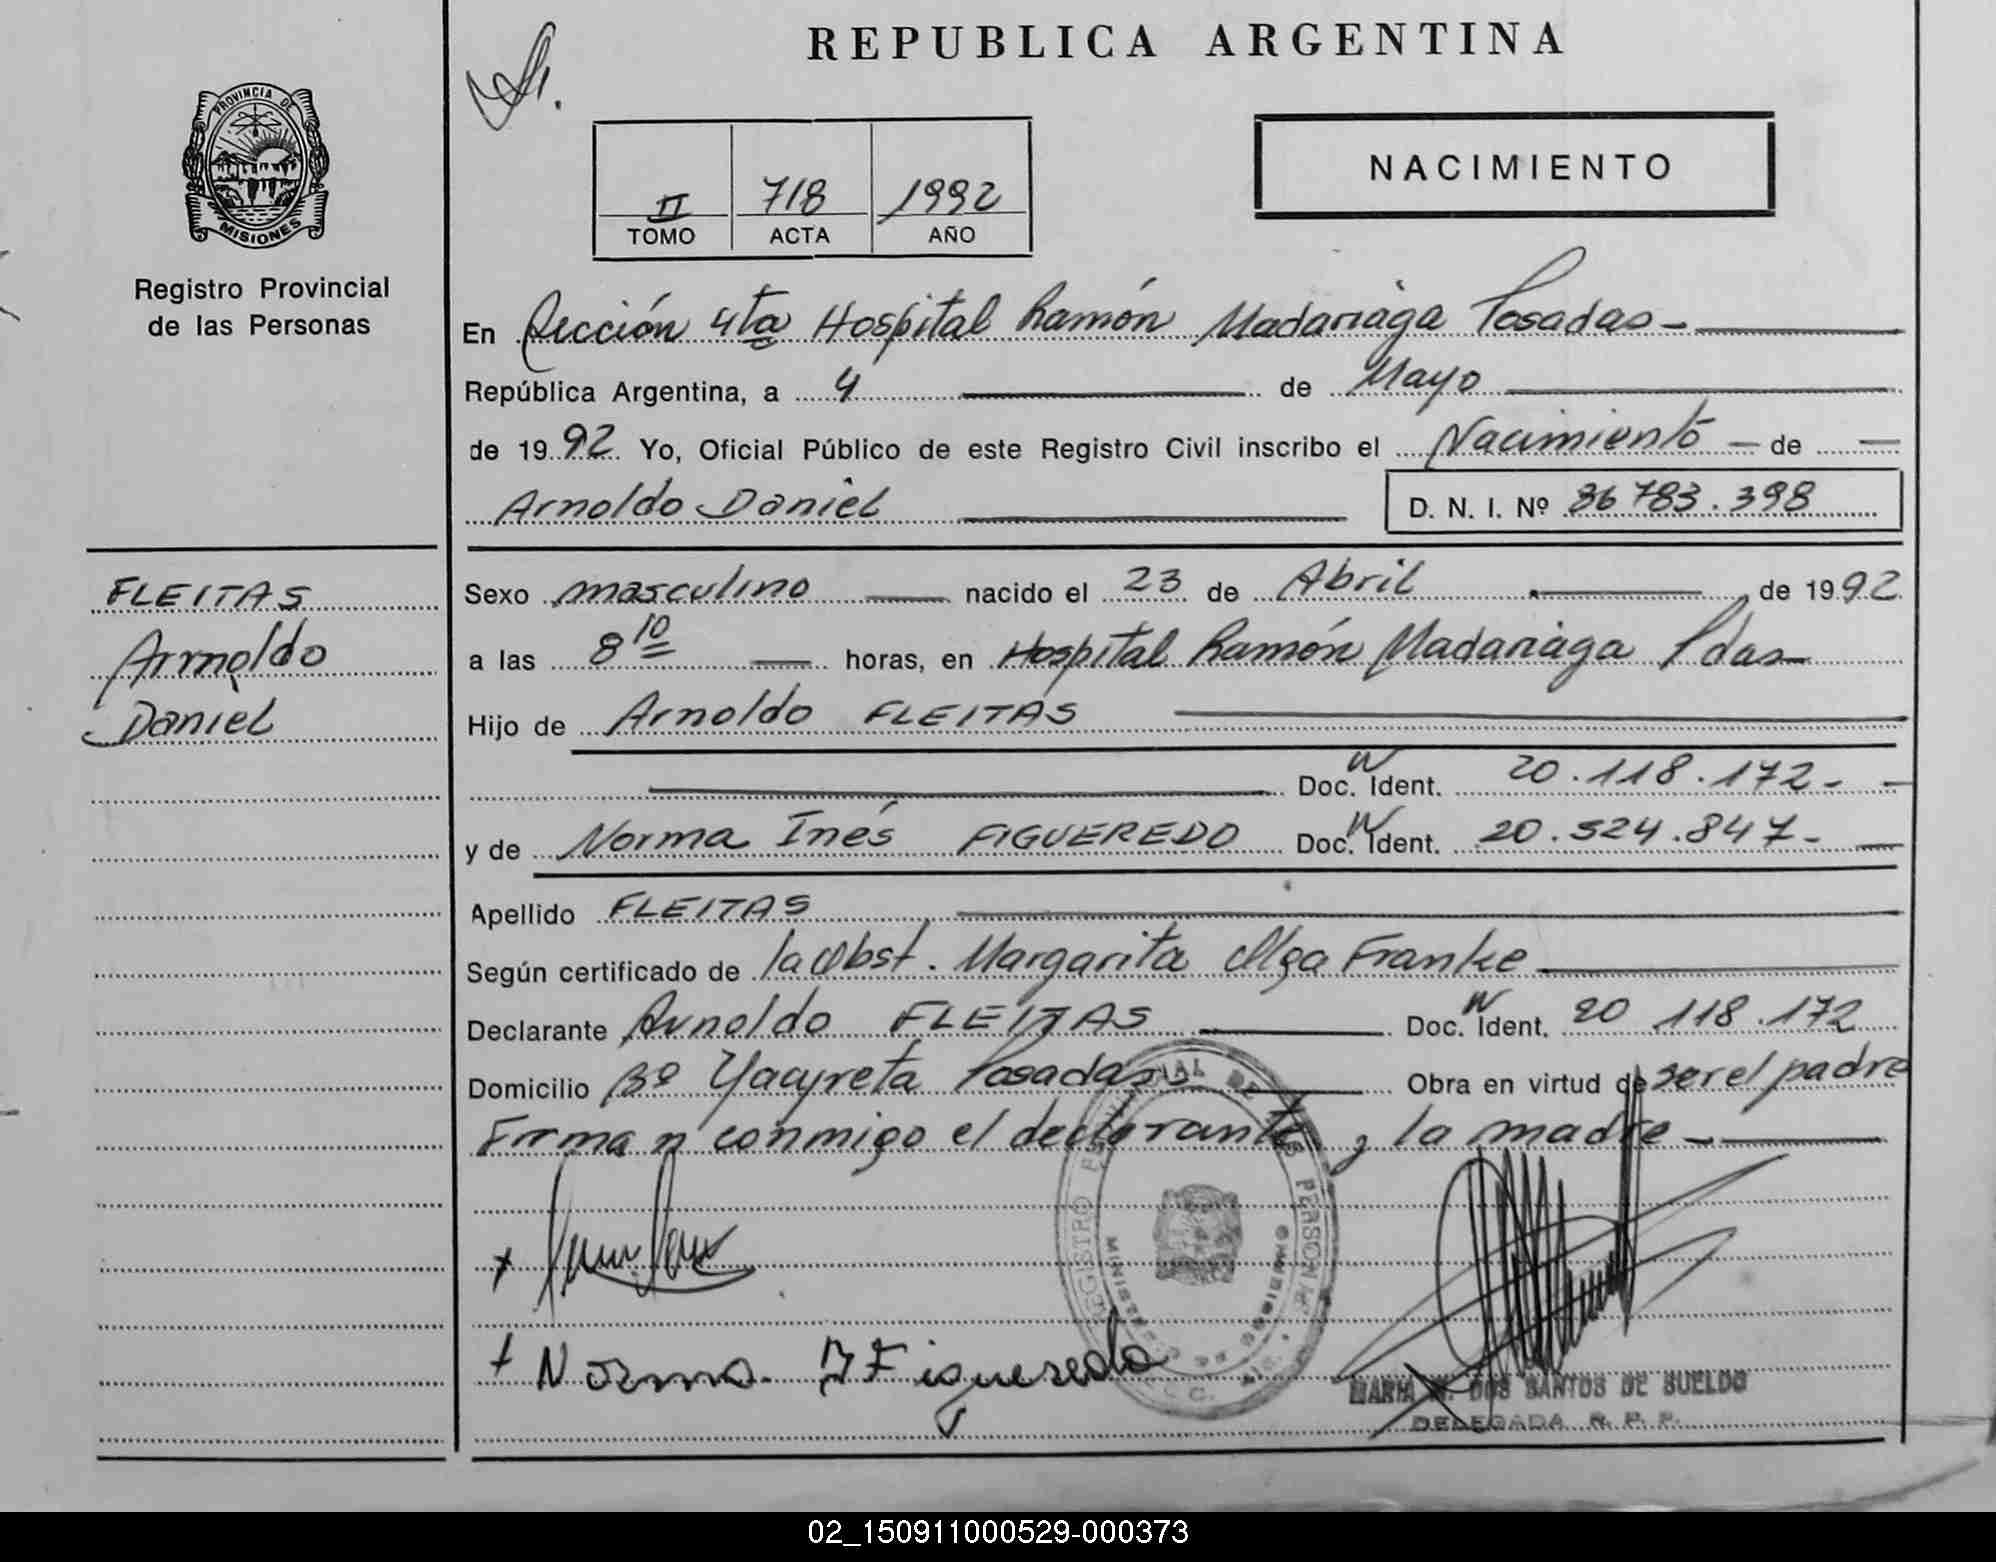 REPUBLICA ARGENTINA
PROVINCIA DE
MISIONES
Registro Provincial
de las Personas
II 718 1992
TOMO ACTA AÑO
NACIMIENTO
En Sección 4ta Hospital Ramón Madariaga Posadas-
República Argentina, a 4 de Mayo
de 1992 Yo, Oficial Público de este Registro Civil inscribo el Nacimiento de
Arnoldo Daniel D. N. I. Nº 36 783.398
FLEITAS
Arnoldo
Daniel
Sexo masculino nacido el 23 de Abril de 1992
a las 8 10 horas, en Hospital Ramón Madariaga Pdas
Hijo de Arnoldo FLEITAS
Doc. Ident. 20.118.172-
y de Norma Inés FIGUEREDO Doc. Ident. 20.524.847-
Apellido FLEITAS
Según certificado de la Obst. Margarita Olga Franke
Declarante Arnoldo FLEITAS Doc. Ident. 20 118.172
Domicilio Bº Yacyreta Posadas Obra en virtud de ser el padre
Firman conmigo el declarante y la madre-
Norma I Figueredo
REGISTRO PROVINCIAL DE LAS PERSONAS
MARIA DOS SANTOS DE SUELDO
DELEGADA R. P. P.
02_150911000529-000373